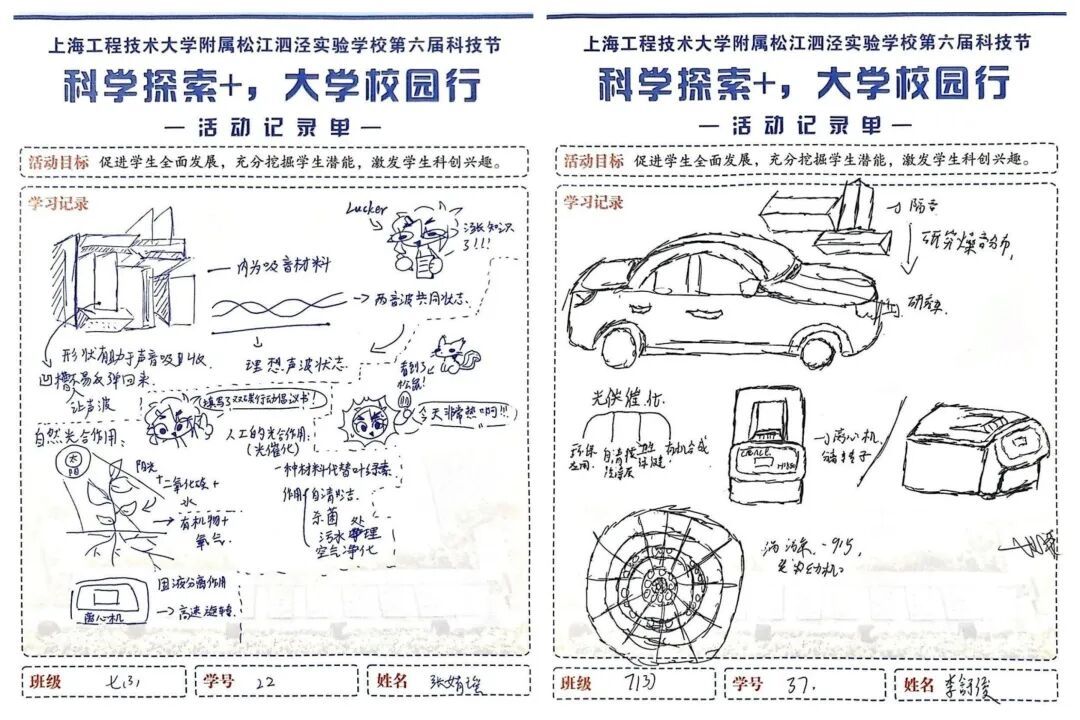 上海工程技术大学附属松江泗泾实验学校第六届科技节
科学探索+，大学校园行
—活动记录单—
活动目标 促进学生全面发展，充分挖掘学生潜能，激发学生科创兴趣。
学习记录
Lucker
涨知识
了!!!
内为吸音材料
两音波共同状态.
形状有助于声音吸收
凹槽不易反弹回来.
让声波
理想声波状态.
看到了
松鼠!
今天非常热啊!!!
自然光合作用:
人工的光合作用:
(光催化)
一种材料代替叶绿素
太阳
阳光
+二氧化碳+
水
有机物+
氧气.
作用
自清洁
杀菌
污水处理
空气净化
固液分离作用
→高速旋转.
离心机
班级 七(3)
学号 22
姓名
上海工程技术大学附属松江泗泾实验学校第六届科技节
科学探索+，大学校园行
—活动记录单—
活动目标 促进学生全面发展，充分挖掘学生潜能，激发学生科创兴趣。
学习记录
→隔音
研究噪音分布,
光催化.
环保
应用.
自清洁
涂层
卫生
保健.
有机合成
→离心机.
班级 7(3)
学号 37.
姓名 李舒俊